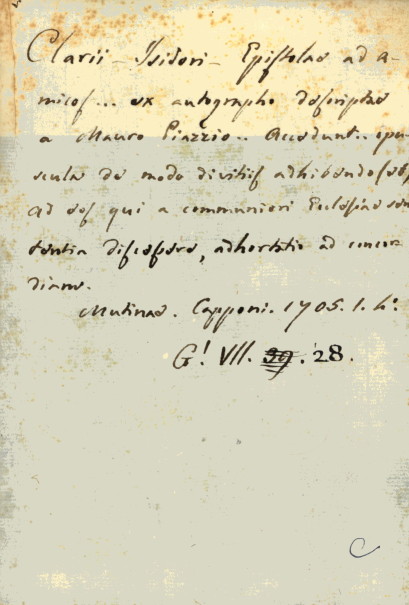 Clarii - Isidori - Epistolae ad a-
micos... ex autographo descriptae
a Mauro Piazzio.. Accedunt.. opu-
scula de modo divitiis adhibendo
ad eos qui a communiori Ecclesiae sen
tentia discessere, adhortatio ad concor
diam.
Mutinae. Capponi. 1705. 1. 4º
G! VII. 39. 28.